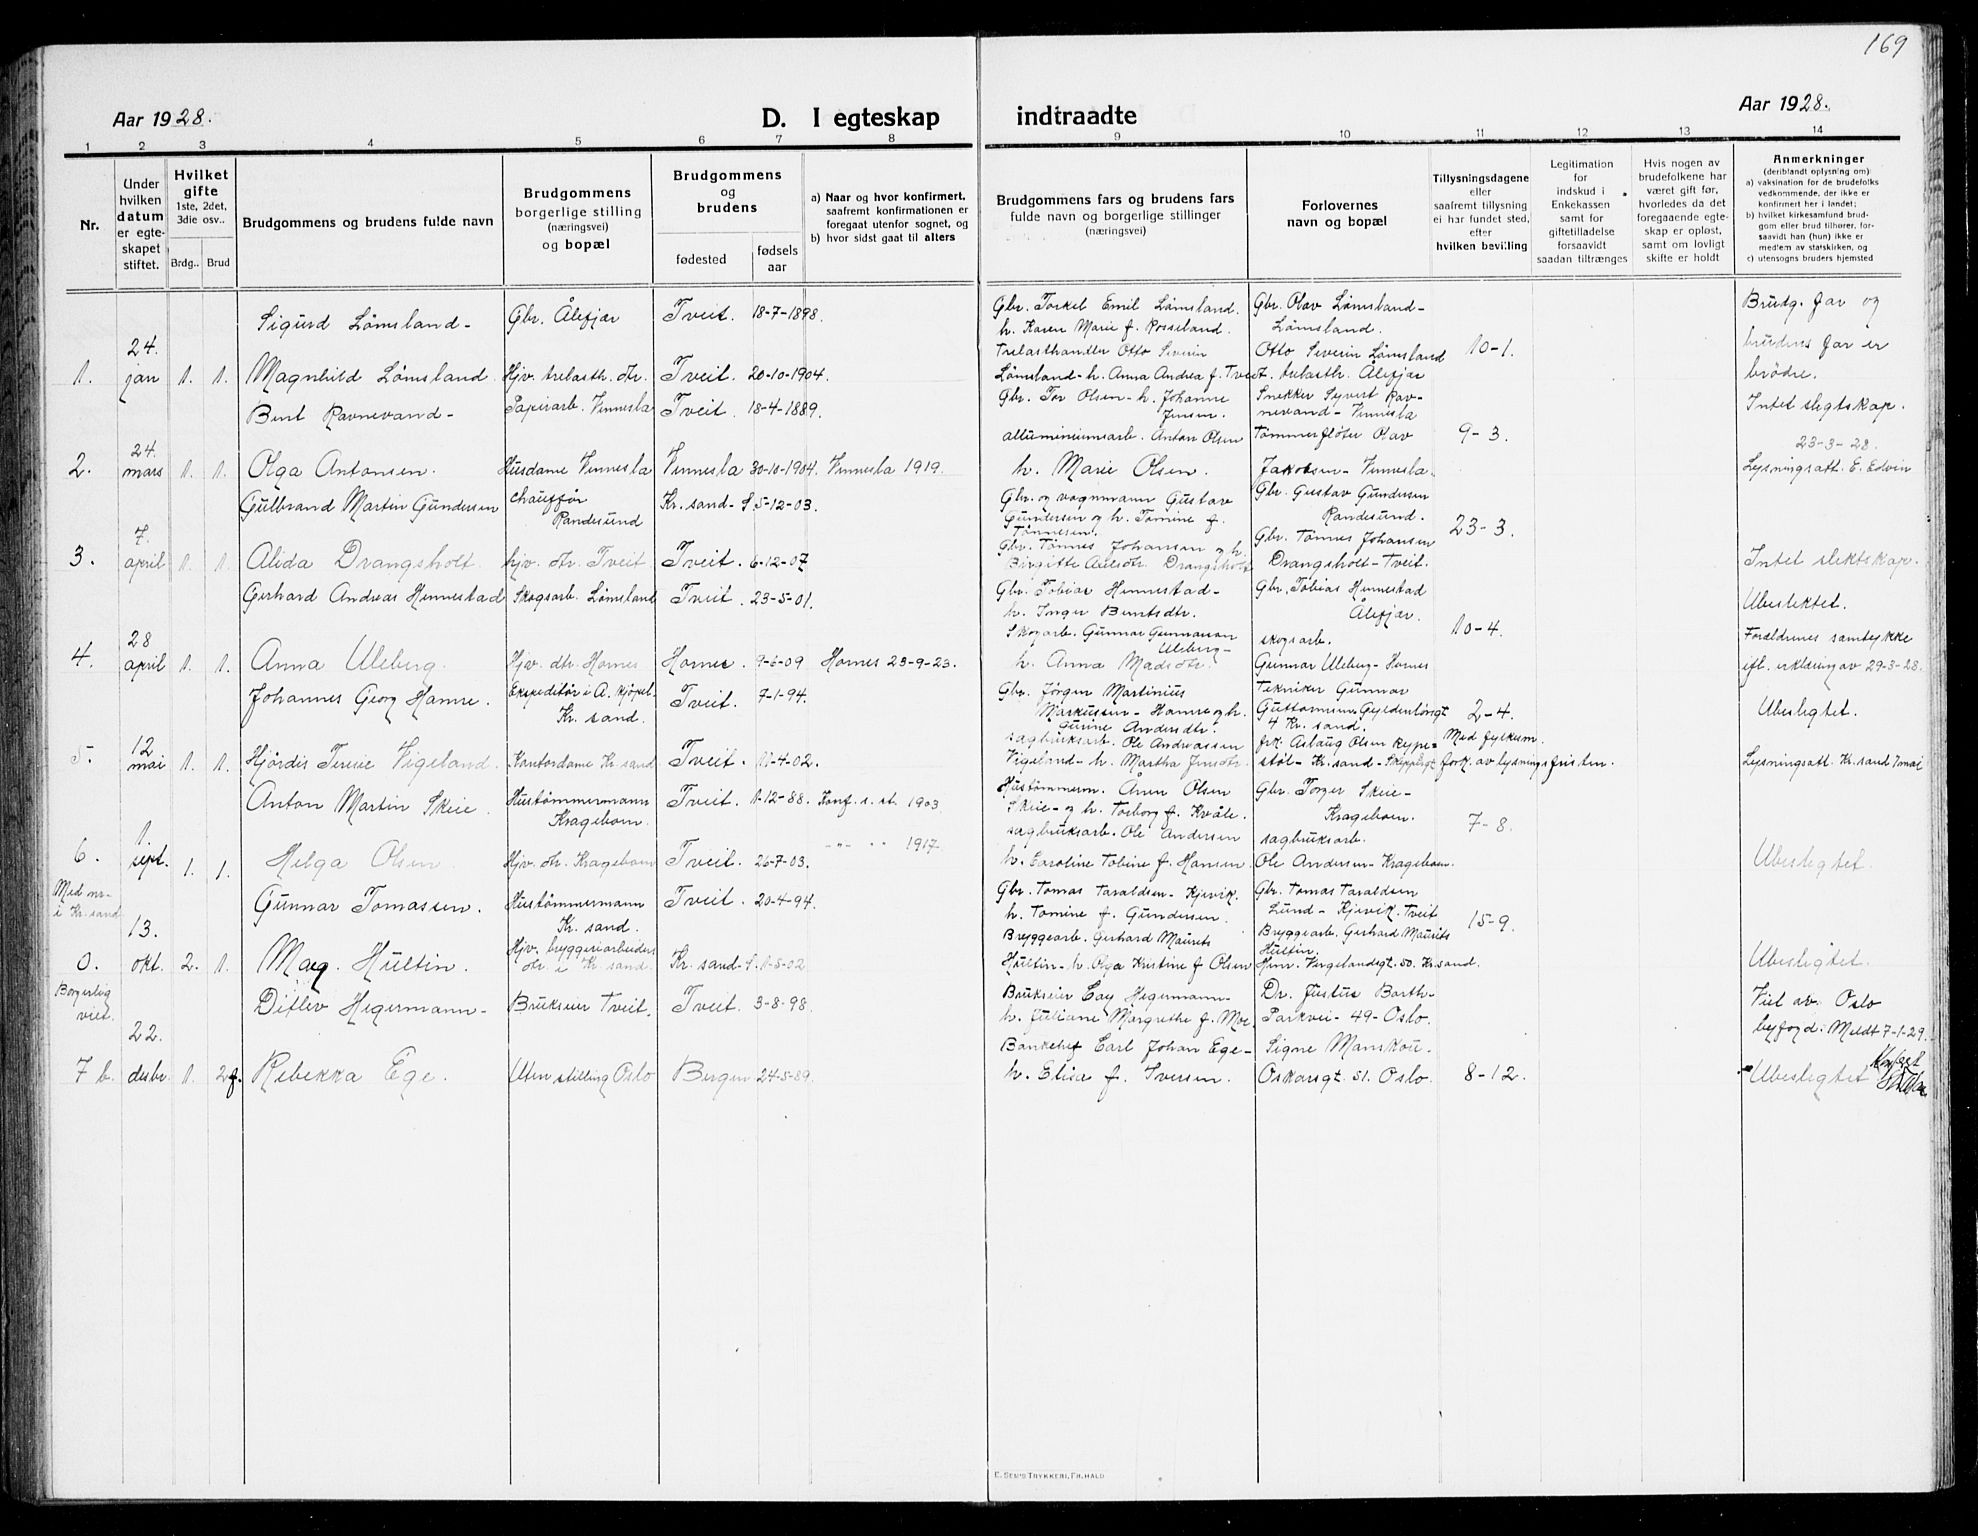 169
Aar 1928.
D. I egteskap indtraadte
Aar 1928.
1 2 3 4 5 6 7 8 9 10 11 12 13 14
Nr.
Under hvilken datum er egteskapet stiftet.
Hvilket gifte 1ste, 2det, 3die osv..
Brdg.. Brud
Brudgommens og brudens fulde navn
Brudgommens borgerlige stilling (næringsvei) og bopæl
Brudgommens og brudens
fødested
fødsels aar
a) Naar og hvor konfirmert, saafremt konfirmationen er foregaat utenfor sognet, og
b) hvor sidst gaat til alters
Brudgommens fars og brudens fars fulde navn og borgerlige stillinger (næringsvei)
Forlovernes navn og bopæl
Tillysningsdagene eller saafremt tillysning ei har fundet sted, efter hvilken bevilling
Legitimation for indskud i Enkekassen samt for giftetilladelse forsaavidt saadan tiltrænges
Hvis nogen av brudefolkene har været gift før, hvorledes da det foregaaende egteskap er opløst, samt om lovligt skifte er holdt
Anmerkninger (deriblandt oplysning om):
a) vaksination for de brudefolks vedkommende, der ikke er konfirmert her i landet;
b) hvilket kirkesamfund brudgom eller brud tilhører, forsaavidt han (hun) ikke er medlem av statskirken, og
c) utensogns bruders hjemsted
Sigurd Lømsland - Gbr. Ålefjær Tveit. 18-7-1898. Gbr. Torkel Emil Lømsland. h. Karen Marie f. Rosseland. Gbr. Olav Lømsland - Lømsland. Brudg. far og
1. 24. jan 1. 1. Magnhild Lømsland Hjv. trelasth. dtr. Tveit. 20-10-1904. Trelasthandler Otto Severin Lømsland - h. Anna Andrea f. Tveit Otto Severin Lømsland trelasth. Ålefjær 10-1. brudens far er brødre.
Bent Ravnevand - Papirarb. Vennesla Tveit. 18-4-1889. Gbr. Tor Olsen - h. Johanne Jensen. Snekker Syvert Ravnevand - Vennesla Intet slegtskap.
2. 24. mars 1. 1. Olga Antonsen. Husdame Vennesla Vennesla 30-10-1904. Vennesla 1919. alluminiumsarb. Anton Olsen h. Marie Olsen. Tømmerfløter Olav Jakobsen - Vennesla. 9-3. 23-3-28. Lysningsatt. E. Edvin
Gulbrand Martin Gundersen chauffør Randesund Kr. sand - S. 5-12-03. Gbr. og vognmann Gustav Gundersen og h. Tomine f. Tønnesen. Gbr. Gustav Gundersen Randesund.
3. 7. april 1. 1. Alida Drangsholt hjv. dtr. Tveit Tveit. 6-12-07 Gbr. Tønnes Johansen og h. Birgitte Aulsdtr. Drangsholt Gbr. Tønnes Johansen Drangsholt - Tveit. 23-3. Intet slektskap.
Gerhard Andreas Hennestad Skogsarb. Lømsland Tveit. 23-5-01. Gbr. Tobias Hennestad - h. Inger Bentsdtr. Gbr. Tobias Hennestad Ålefjær. Ubeslektet.
4. 28 april 1. 1. Anna Uleberg. Hjv. dtr. Hornes Hornes. 9-6-09 Hornes 23-9-23. Skogarb. Gunnar Gunnarson Uleberg - h. Anna Madsdtr. skogsarb. Gunnar Uleberg - Hornes 10-4. Foreldrenes samtykke ifl. erklæring av 29-3-28.
Johannes Georg Hamre. Ekspeditør i A. kjøpel. Kr. sand. Tveit. 7-1-94. Gbr. Jørgen Martinius Markussen - Hamre og h. Gurine Andersdtr. Tekniker Gunnar Guttormsen Gyldenløvgt 4 Kr. sand. 2-4. Ubeslegtet.
5. 12 mai 1. 1. Hjørdis Terese Vigeland. Kontordame Kr. sand Tveit. 11-4-02. sagbruksarb. Ole Andreassen Vigeland - h. Martha Jensdtr. frk. Asbaug Olsen Rypestøl - Kr. sand - Skippergt Med fylkesm. fork. av lysningsfristen. Lysningsatt. Kr. sand 7 mai
Anton Martin Skeie. Hustømmermann Krageboen. Tveit. 1-12-88. Konf. s. st. 1903 Hustømmerm. Ånen Olsen Skeie - og h. Torborg f. Kvåle. Gbr. Torger Skeie - Krageboen.
6. 1. sept. 1. 1. Helga Olsen Hjv. dtr. Krageboen Tveit. 26-7-03. " " " 1917. sagbruksarb. Ole Andersen h. Caroline Tobine f. Hansen. sagbruksarb. Ole Andersen - Krageboen. 7-8. Ubeslegtet.
Med nr. i Kr. sand Gunnar Tomassen. Hustømmermann Kr. sand. Tveit. 20-4-94. Gbr. Tomas Taraldsen - Kjevik. h. Tomine f. Gundersen. Gbr. Tomas Taraldsen Lund - Kjevik. Tveit
0. 13. okt. 2. 1. Mag. Hultin. Hjv. bryggeriarbeiders dtr. i Kr. sand. Kr. sand - S. 1-5-02 Bryggearb. Gerhard Maurits Hultin - h. Olga Kristine f Olsen Bryggearb. Gerhard Maurits Hultin Henr. Vergelandsgt. 50. Kr. sand. 15-9. Ubeslegtet.
Borgerlig viet. Ditlev Hegermann - Brukseier Tveit. Tveit. 3-8-98. Brukseier Cay Hegermann - h. Juliane Margrethe f. Moe Dr. Justus Barth - Parkvei - 49 - Oslo. Viet av Oslo byfogd. Meldt 7-1-29.
7 b. 22. desbr. 1. 2 f. Rebekka Ege. Uten stilling Oslo Bergen 24-5-89. Bankchef Carl Johan Ege - h. Elisa f. Iversen. Signe Manskou. Oskarsgt. 51. Oslo. 8-12. Ubeslegtet
E. Sem's Trykkeri, Fr.hald